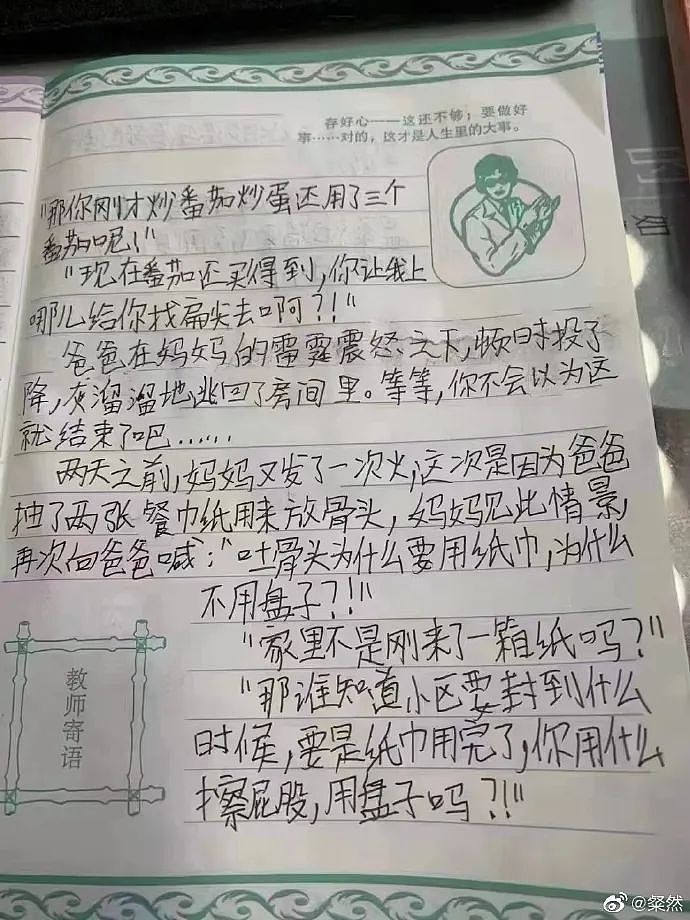 存好心——这还不够；要做好
事……对的，这才是人生里的大事。
"那你刚才炒番茄炒蛋还用了三个
番茄呢！"
"现在番茄还买得到，你让我上
哪儿给你找扁尖去啊？！"
爸爸在妈妈的雷霆震怒之下，顿时投了
降，灰溜溜地逃回了房间里。等等，你不会以为这
就结束了吧……
两天之前，妈妈又发了一次火，这次是因为爸爸
抽了两张餐巾纸用来放骨头，妈妈见此情景，
再次向爸爸喊："吐骨头为什么要用纸巾，为什么
不用盘子？！"
"家里不是刚来了一箱纸吗？"
"那谁知道小区要封到什么
时候，要是纸巾用完了，你用什么
擦屁股，用盘子吗？！"
教师寄语
@粲然